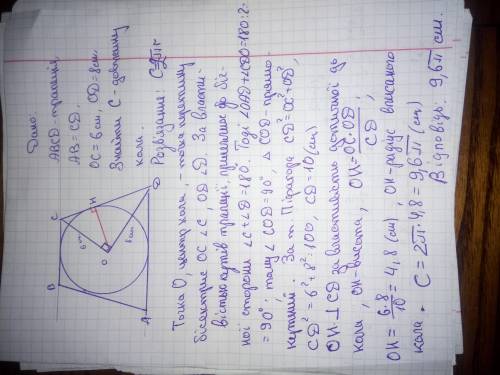 Дано:
ABCD-трапеція,
AB = CD.
OC = 6 см. OD = 8 см.
Знайти C - довжину
кола.
B
C
H
6
O
8 см
A
D
Розв'язання: C=2πr
Точка O, центр кола, - точка перетину
бісектрис OC ∠C OD ∠D. За власти-
вістю кутів трапеції, прилеглих до біч-
ної сторони ∠C+∠D=180°. Тоді +∠CDO=180:2=
= 90°, тому ∠COD = 90°, △COD - прямо-
кутний. За т. Піфагора CD²=OC²+OD²,
CD² = 6² + 8² = 100, CD = 10 (см)
OH ⊥ CD за властивістю дотичної до
кола, OH - висота, OH = OC·OD / CD ;
OH = 6·8 / 10 = 4,8 (см), OH - радіус вписаного
кола. C = 2π·4,8 = 9,6π (см)
Відповідь: 9,6π см.